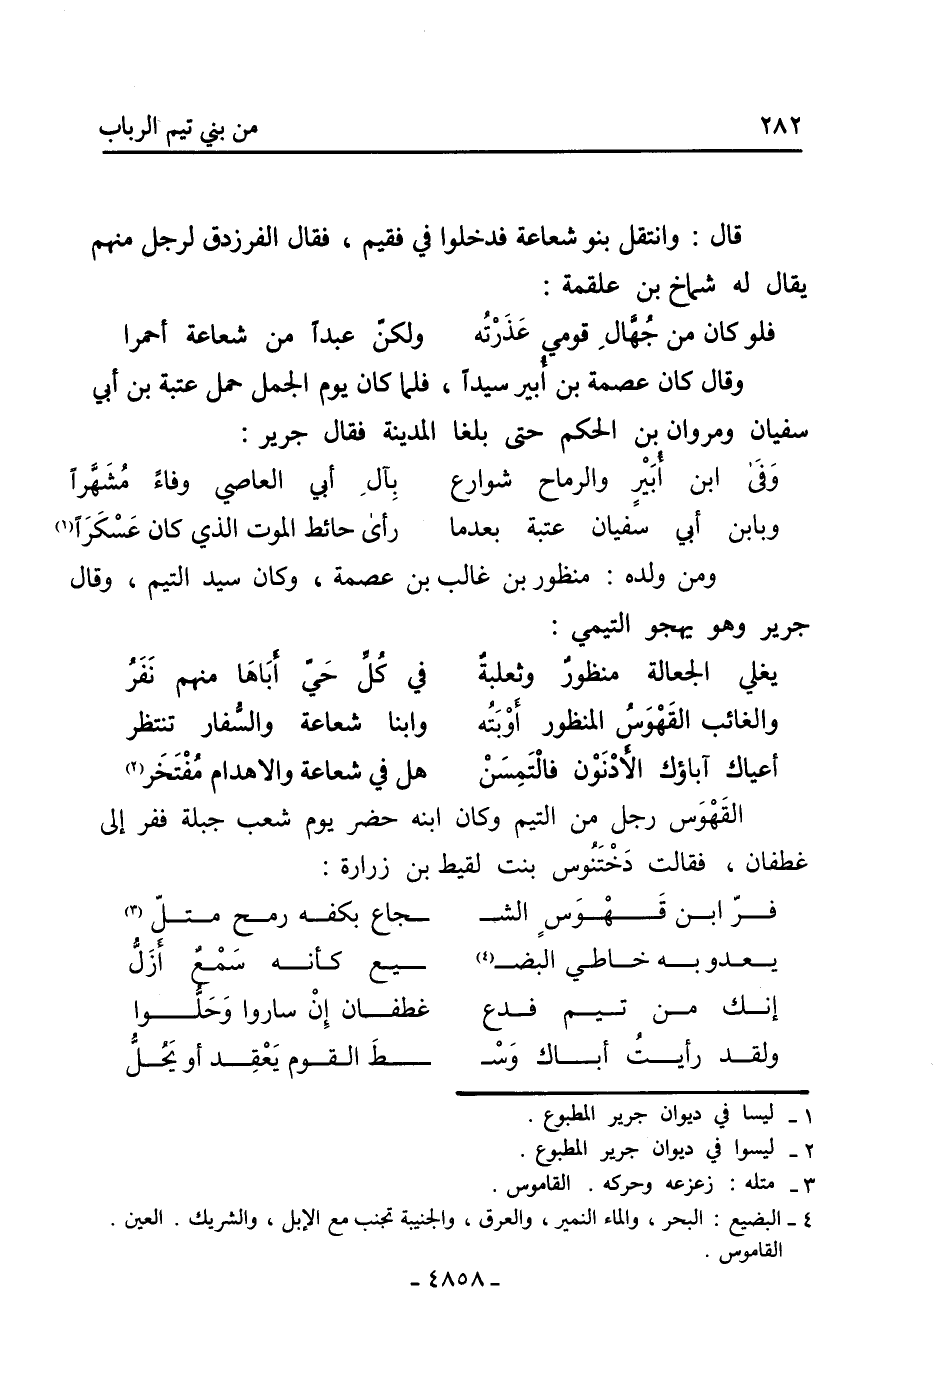 ٢٨٢ من بني تيم الرباب
قال : وانتقل بنو شعاعة فدخلوا في فقيم ، فقال الفرزدق لرجل منهم
يقال له شماخ بن علقمة :
فلو كان من جُهَّالِ قومي عَذَرْتُه ولكنّ عبداً من شعاعة أحمرا
وقال كان عصمة بن أُبير سيداً ، فلما كان يوم الجمل حمل عتبة بن أبي
سفيان ومروان بن الحكم حتى بلغا المدينة فقال جرير :
وَفَىٰ ابن أُبَيْرٍ والرماح شوارع بِآلِ أبي العاصي وفاءً مُشَهَّراً
وبابن أبي سفيان عتبة بعدما رأىٰ حائط الموت الذي كان عَسْكَرَاً(١)
ومن ولده : منظور بن غالب بن عصمة ، وكان سيد التيم ، وقال
جرير وهو يهجو التيمي :
يغلي الجعالة منظورٌ وثعلبةٌ في كُلِّ حَيّ أَبَاهَا منهم نَفَرُ
والغائب القَهْوَسُ المنظور أَوْبَتُه وابنا شعاعة والسُّفار تنتظر
أعياك آباؤك الأَدْنَوْن فالْتَمِسَنْ هل في شعاعة والاهدام مُفْتَخَر(٢)
القَهْوَس رجل من التيم وكان ابنه حضر يوم شعب جبلة ففر إلى
غطفان ، فقالت دَخْتَنُوس بنت لقيط بن زرارة :
فــرّ ابــن قَــهْــوَسٍ الشـ ـجاع بكفــه رمــح متــلّ(٣)
يــعدو بــه خــاطي البضـ(٤) ـيع كــأنــه سَمْعٌ أَزَلُّ
إنــك مــن تــيــم فــدع غطفــان إنْ ساروا وَحَلُّــوا
ولقــد رأيــتُ أبــاك وَسْـ ـطَ الــقــوم يَعْقِــد أو يَحُــلُّ
١ ـ ليسا في ديوان جرير المطبوع .
٢ ـ ليسوا في ديوان جرير المطبوع .
٣ ـ متله : زعزعه وحركه . القاموس .
٤ ـ البضيع : البحر ، والماء النمير ، والعرق ، والجنيبة تجنب مع الإبل ، والشريك . العين .
القاموس .
ـ ٤٨٥٨ ـ